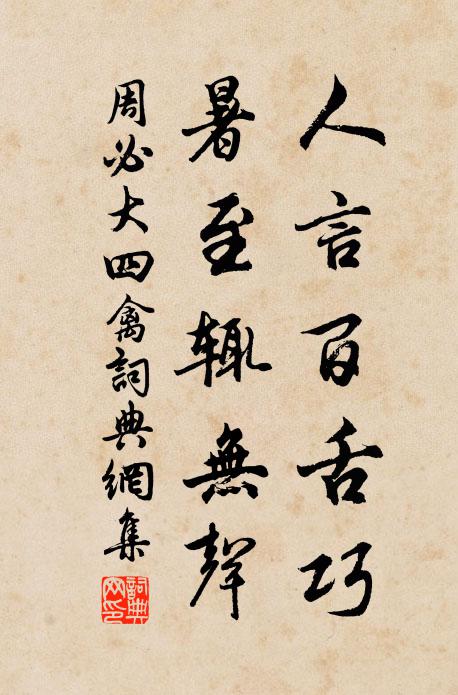 人言百舌巧
暑至輒無聲
周必大四禽詞典網集
詞典網印